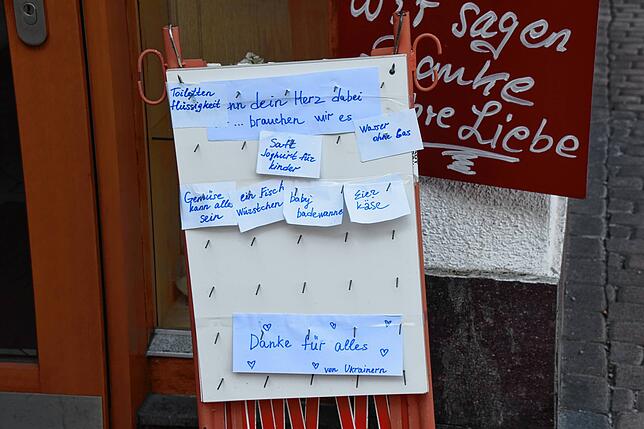 Wir sagen
Danke
Ihre Liebe
Toiletten
flüssigkeit
nn dein Herz dabei
... brauchen wir es
Wasser
ohne Gas
Saft
Joghurt für
kinder
Gemüse
kann alles
sein
ein Fisch
Würstchen
baby
badewanne
Eier
käse
Danke für alles
von Ukrainern